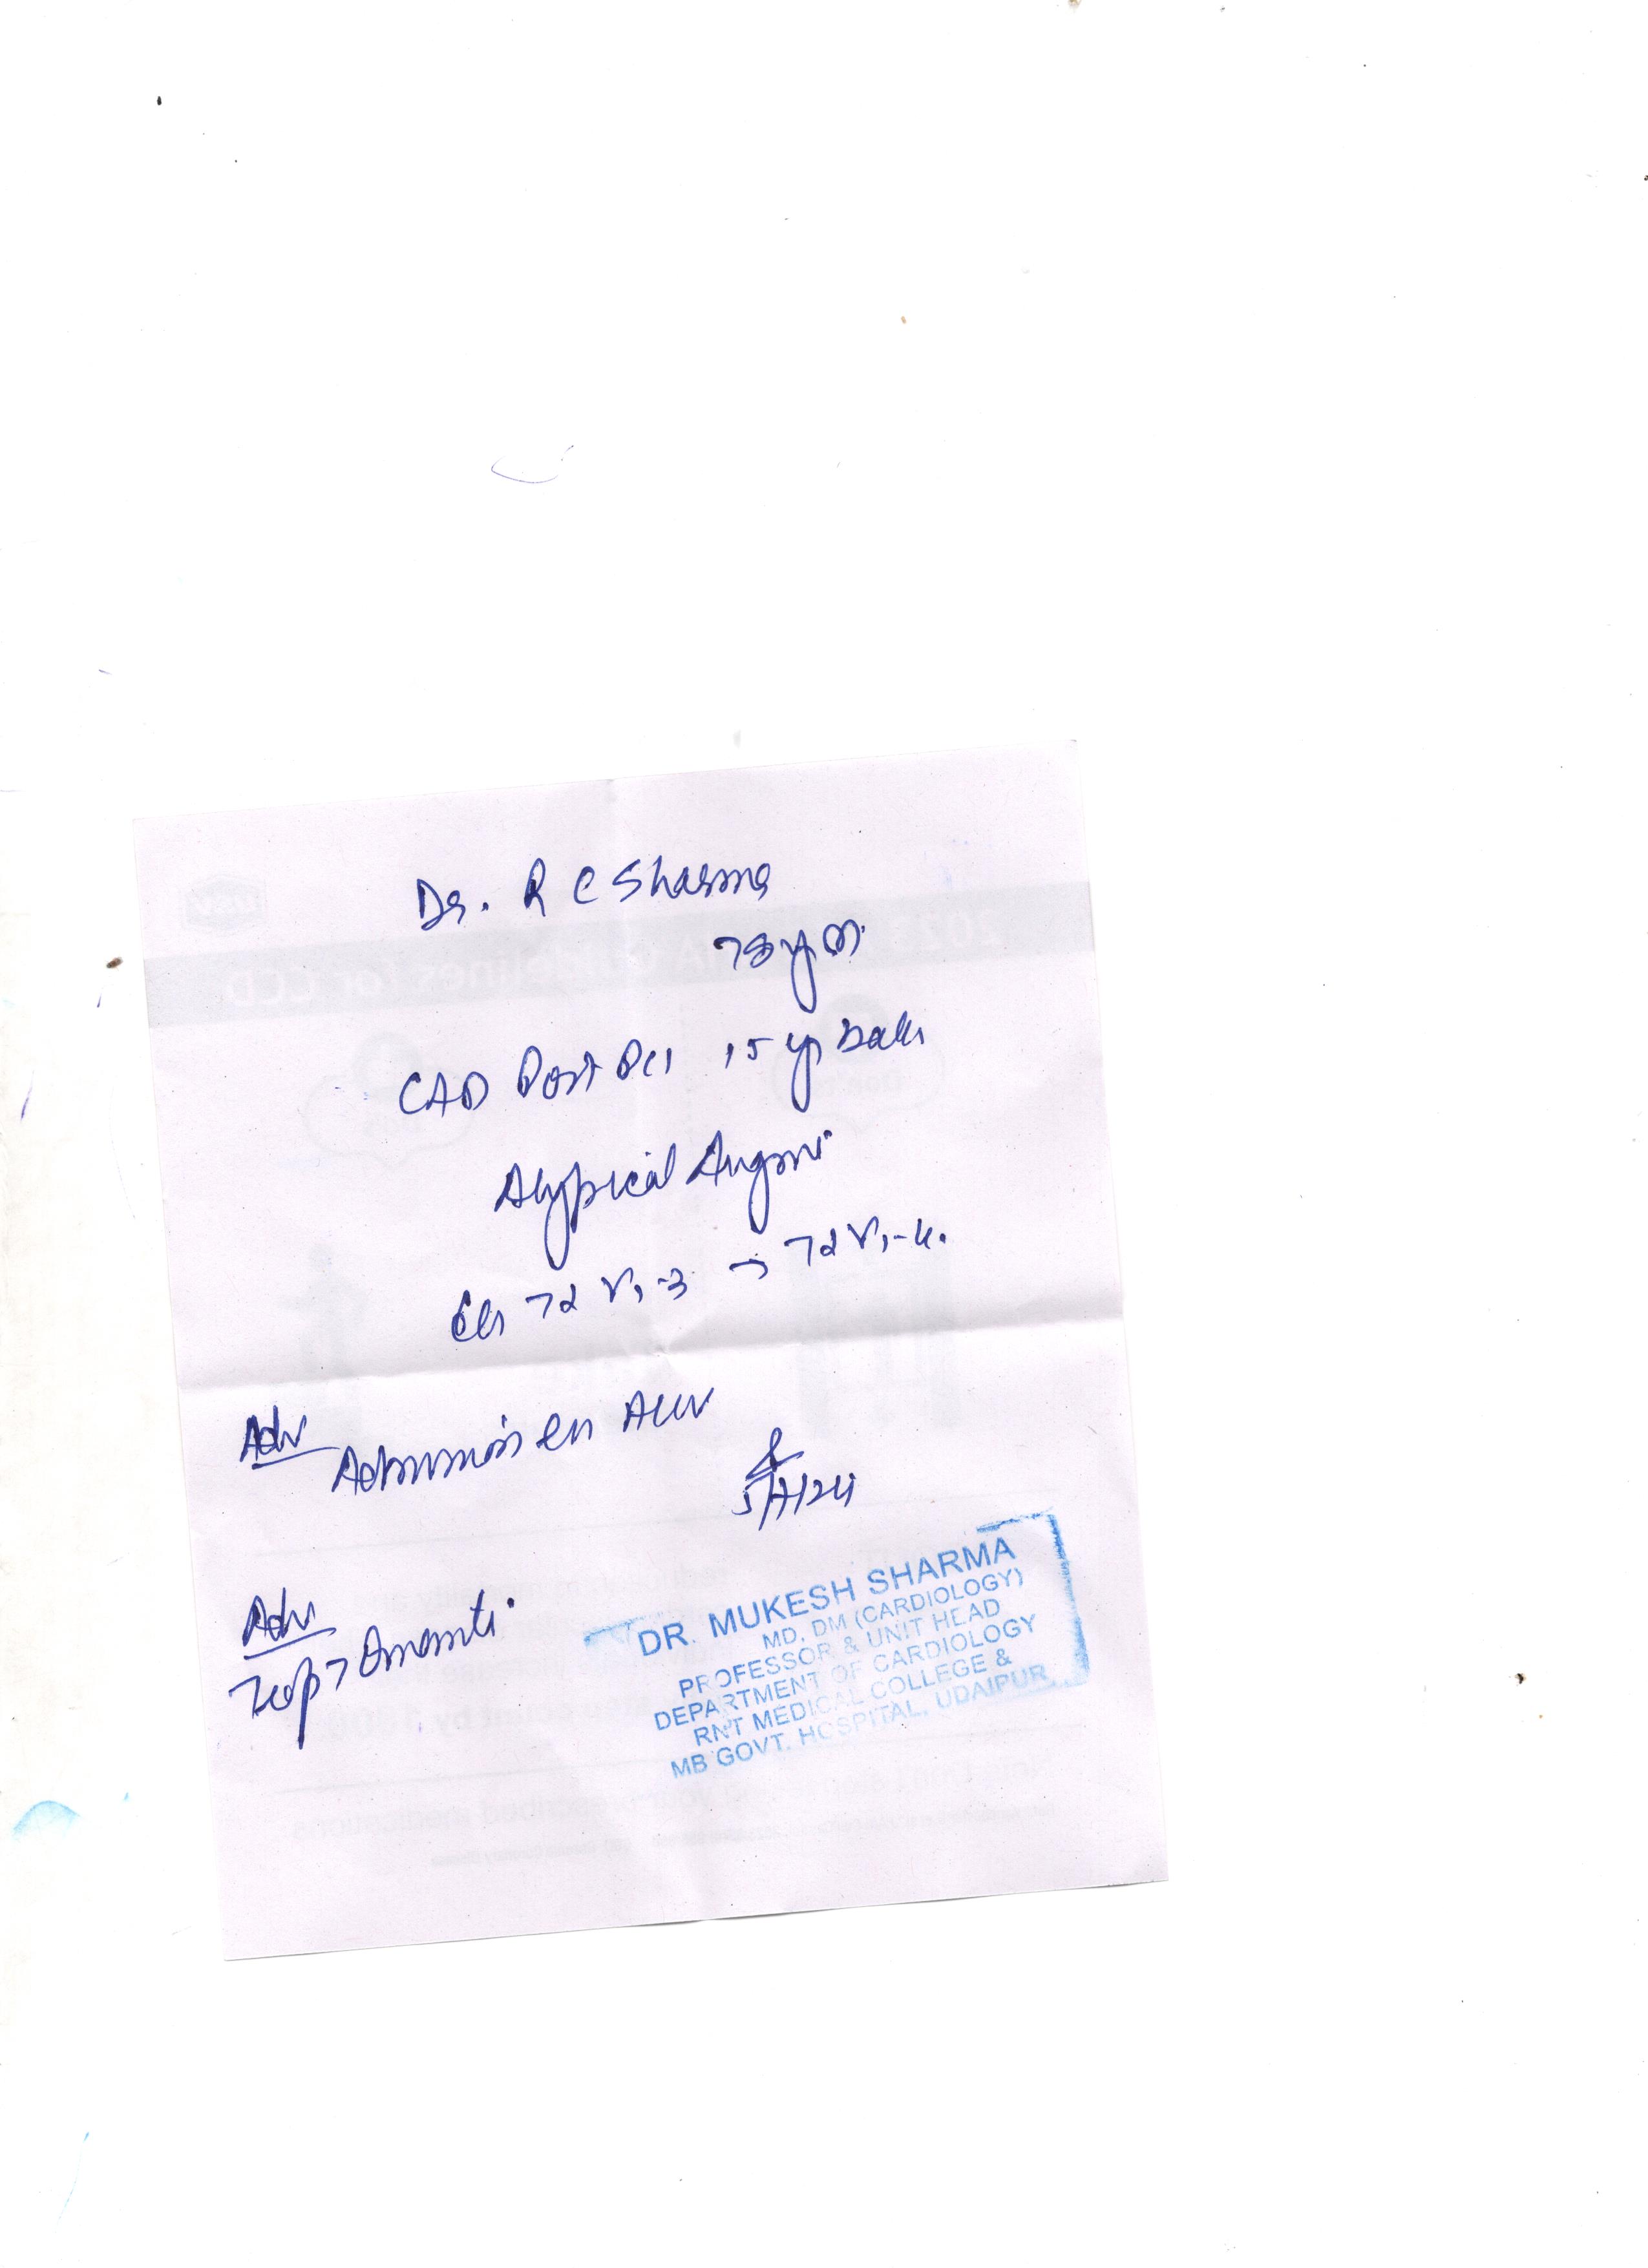 Dr. R C Sharma
78 yr m.
CAD Post PCI 15 yr back
Atypical Angina
ECG V1-3 → V1-4.
Adv
Admission in
5/7/24
Adv
Trop T
DR. MUKESH SHARMA
MD, DM (CARDIOLOGY)
PROFESSOR & UNIT HEAD
DEPARTMENT OF CARDIOLOGY
RNT MEDICAL COLLEGE &
MB GOVT. HOSPITAL, UDAIPUR